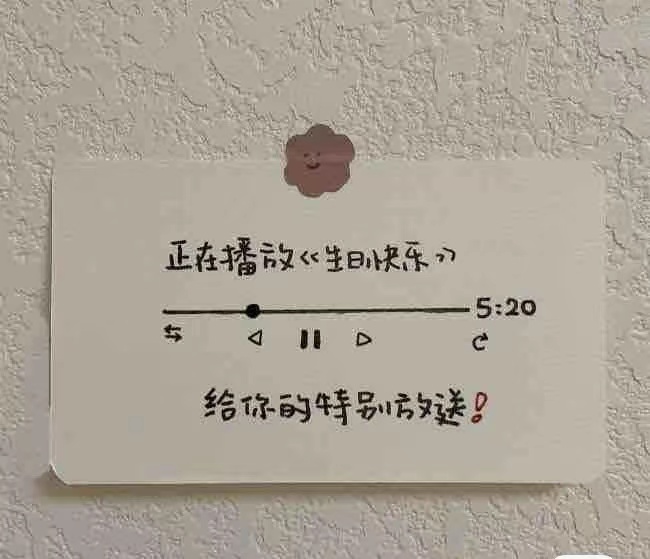 正在播放《生日快乐》
5:20
给你的特别放送!